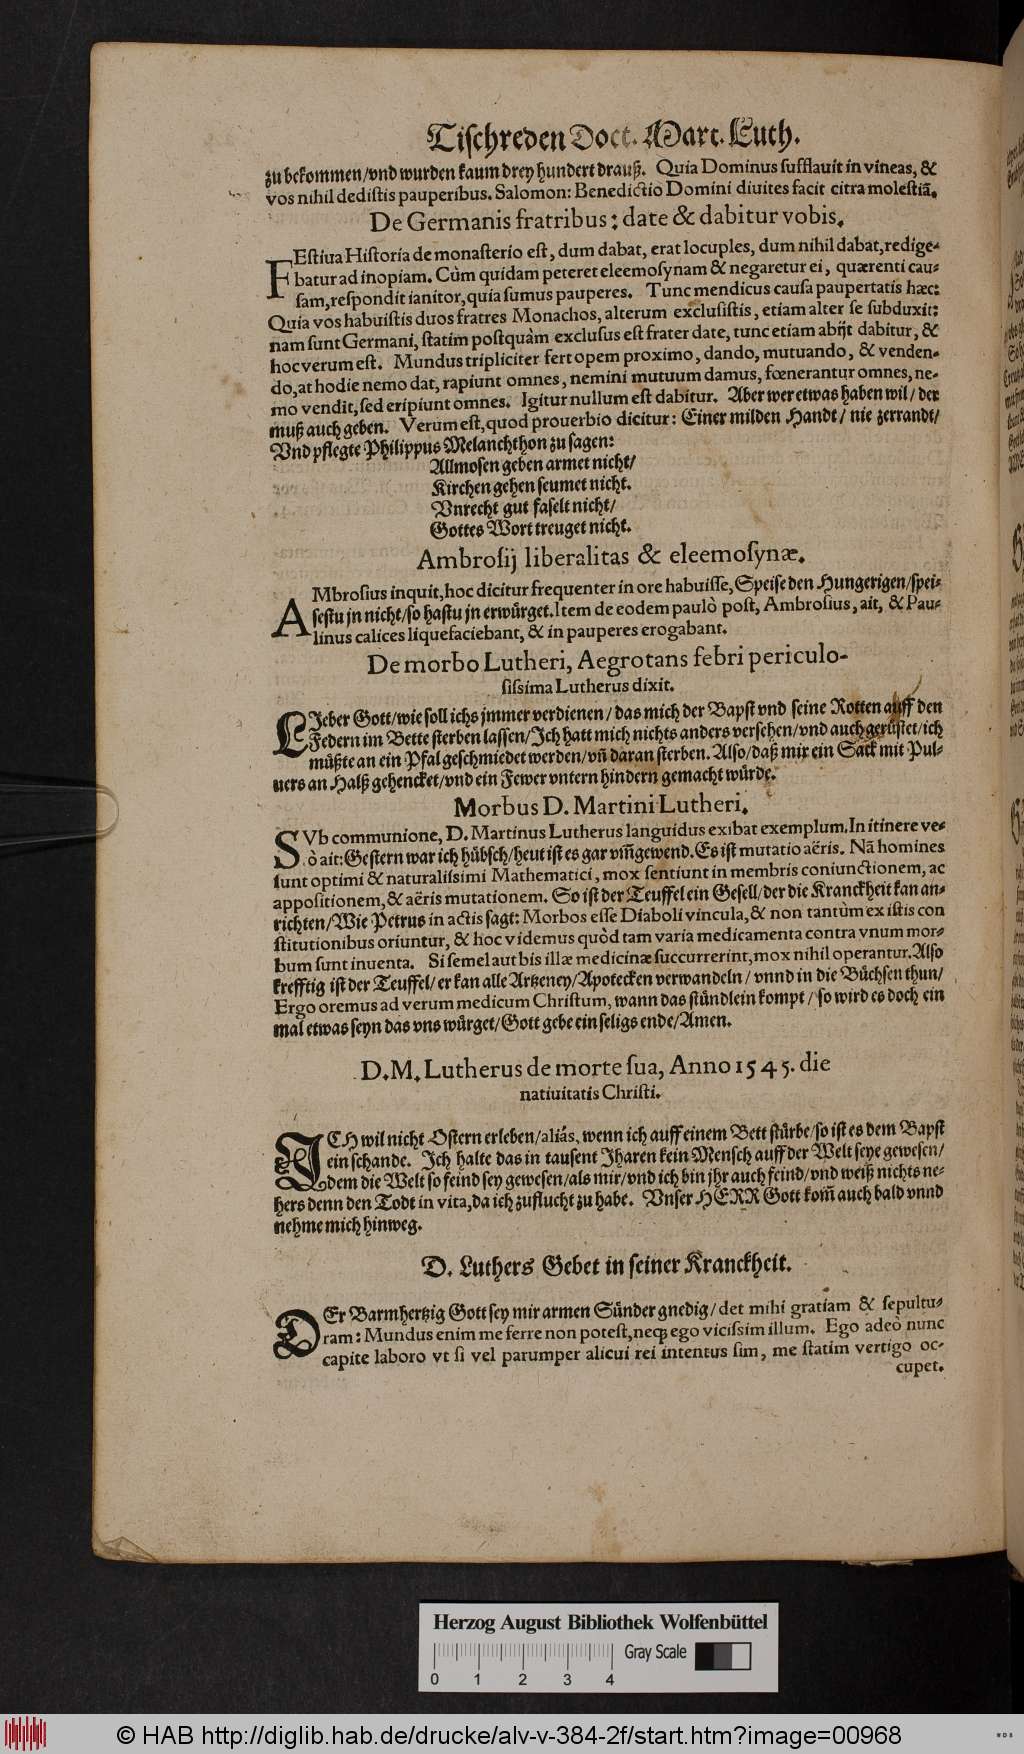 Tischreden Doct. Mart. Luth.
zu bekommen/vnd wurden kaum drey hundert drauß. Quia Dominus sufflauit in vineas, &
vos nihil dedistis pauperibus. Salomon: Benedictio Domini diuites facit citra molestiã.
De Germanis fratribus: date & dabitur vobis.
FEstiua Historia de monasterio est, dum dabat, erat locuples, dum nihil dabat, redige-
batur ad inopiam. Cùm quidam peteret eleemosynam & negaretur ei, quærenti cau-
sam, respondit ianitor, quia sumus pauperes. Tunc mendicus causa paupertatis hæc:
Quia vos habuistis duos fratres Monachos, alterum exclusistis, etiam alter se subduxit:
nam sunt Germani, statim postquàm exclusus est frater date, tunc etiam abijt dabitur, &
hoc verum est. Mundus tripliciter fert opem proximo, dando, mutuando, & venden-
do, at hodie nemo dat, rapiunt omnes, nemini mutuum damus, fœnerantur omnes, ne-
mo vendit, sed eripiunt omnes. Igitur nullum est dabitur. Aber wer etwas haben wil/ der
muß auch geben. Verum est, quod prouerbio dicitur: Einer milden Handt/ nie zerrandt/
Vnd pflegte Philippus Melanchthon zu sagen:
Allmosen geben armet nicht/
Kirchen gehen seumet nicht.
Vnrecht gut faselt nicht/
Gottes Wort treuget nicht.
Ambrosij liberalitas & eleemosynæ.
AMbrosius inquit, hoc dicitur frequenter in ore habuisse, Speise den Hungerigen/spei-
sestu jn nicht/so hastu jn erwürget. Item de eodem paulò post, Ambrosius, ait, & Pau-
linus calices liquefaciebant, & in pauperes erogabant.
De morbo Lutheri, Aegrotans febri periculo-
sissima Lutherus dixit.
LJeber Gott/wie soll ichs jmmer verdienen/ das mich der Bapst vnd seine Rotten auff den
Federn im Bette sterben lassen/Jch hatt mich nichts anders versehen/vnd auch gerüstet/ich
müßte an ein Pfal geschmiedet werden/vñ daran sterben. Also/daß mir ein Sack mit Pul-
uers an Halß gehencket/vnd ein Fewer vntern hindern gemacht würde.
Morbus D. Martini Lutheri.
SVb communione, D. Martinus Lutherus languidus exibat exemplum. In itinere ve-
rò ait: Gestern war ich hübsch/heut ist es gar vm̃gewend. Es ist mutatio aëris. Nã homines
sunt optimi & naturalissimi Mathematici, mox sentiunt in membris coniunctionem, ac
appositionem, & aëris mutationem. So ist der Teuffel ein Gesell/der die Kranckheit kan an-
richten/Wie Petrus in actis sagt: Morbos esse Diaboli vincula, & non tantùm ex istis con
stitutionibus oriuntur, & hoc videmus quòd tam varia medicamenta contra vnum mor-
bum sunt inuenta. Si semel aut bis illæ medicinæ succurrerint, mox nihil operantur. Also
krefftig ist der Teuffel/ er kan alle Artzeney/Apotecken verwandeln/ vnnd in die Büchsen thun/
Ergo oremus ad verum medicum Christum, wann das stündlein kompt/ so wird es doch ein
mal etwas seyn das vns würget/Gott gebe ein seligs ende/Amen.
D. M. Lutherus de morte sua, Anno 1545. die
natiuitatis Christi.
JCH wil nicht Ostern erleben/aliás, wenn ich auff einem Bett stürbe/so ist es dem Bapst
ein schande. Jch halte das in tausent Jharen kein Mensch auff der Welt seye gewesen/
dem die Welt so feind sey gewesen/als mir/vnd ich bin jhr auch feind/vnd weiß nichts ne-
hers denn den Todt in vita, da ich zuflucht zu habe. Vnser HERR Gott kom̃ auch bald vnnd
nehme mich hinweg.
D. Luthers Gebet in seiner Kranckheit.
DEr Barmhertzig Gott sey mir armen Sünder gnedig/ det mihi gratiam & sepultu-
ram: Mundus enim me ferre non potest, neq; ego vicissim illum. Ego adeò nunc
capite laboro vt si vel parumper alicui rei intentus sim, me statim vertigo oc-
cupet.
Herzog August Bibliothek Wolfenbüttel
Gray Scale
0 1 2 3 4
© HAB http://diglib.hab.de/drucke/alv-v-384-2f/start.htm?image=00968